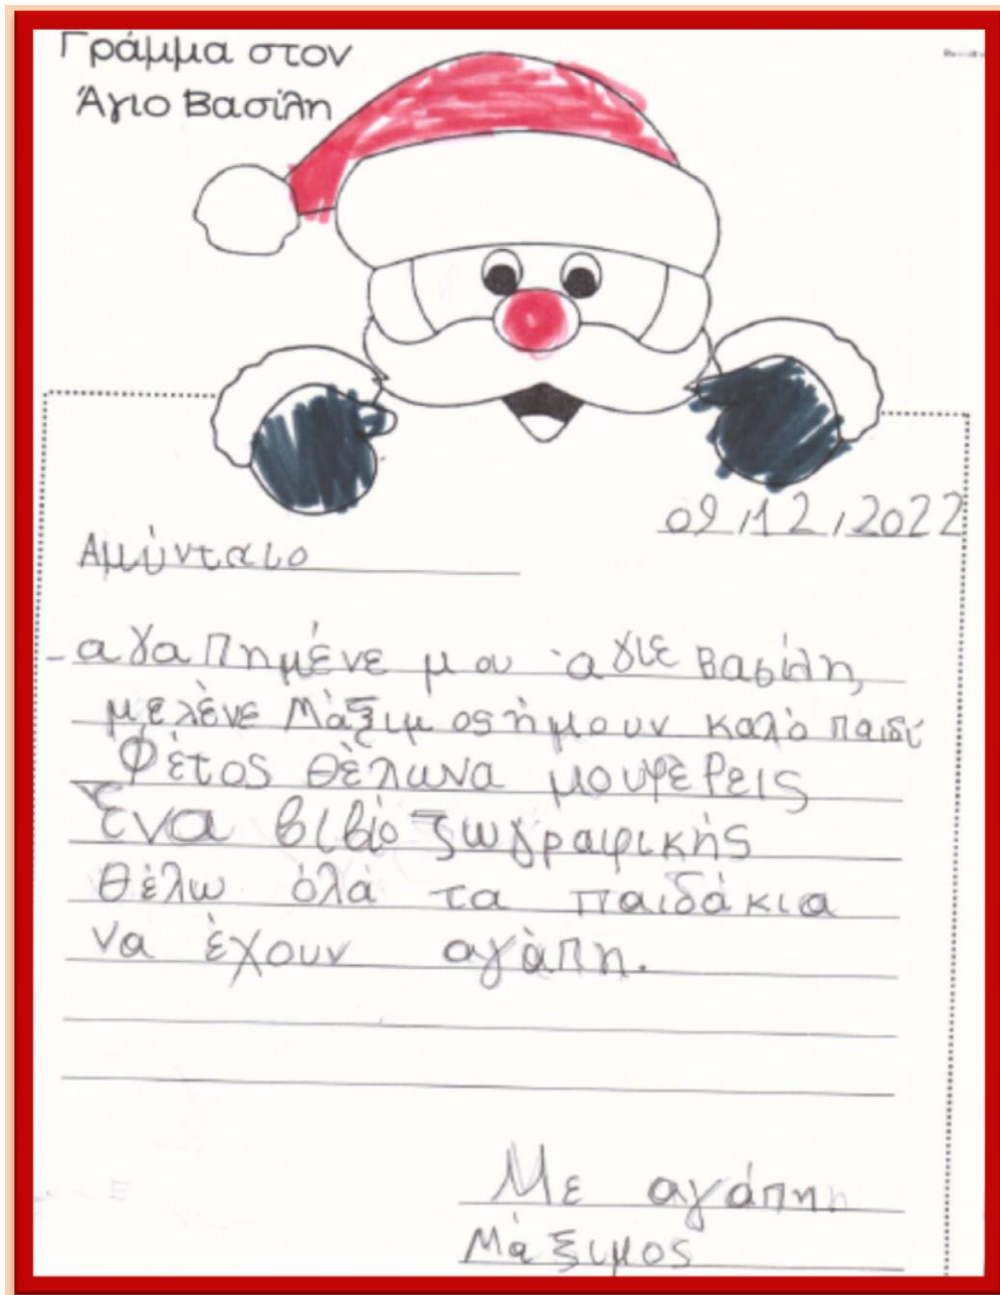 Γράμμα στον
Άγιο Βασίλη
09/12/2022
Αμύνταιο
αγαπημένε μου άγιε Βασίλη,
μελένε Μάξιμος ήμουν καλό παιδί
Φέτος θέλωνα μουφέρεις
Ένα βιβίο ζωγραφικής
θέλω όλά τα παιδάκια
να έχουν αγάπη.
Με αγάπη
Μάξιμος